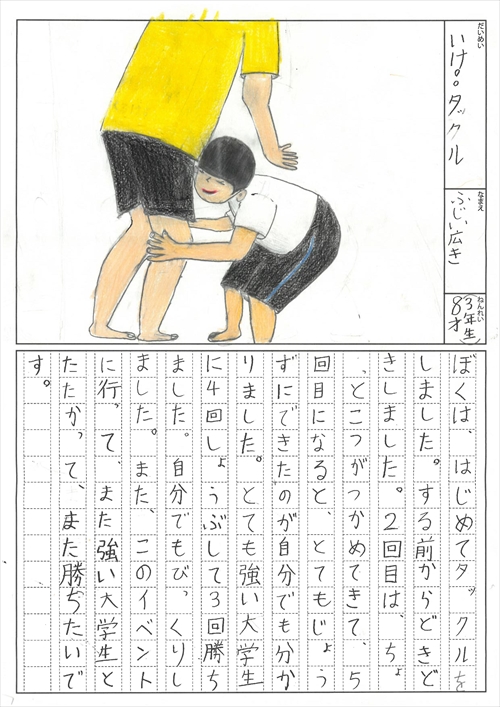 だいめい
いけ。。タックル
なまえ
ふじい広き
ねんれい
8才(3年生)
ぼくは、はじめてタックルを
しました。する前からどきど
きしました。2回目は、ちょ
っとこつがつかめてきて、5
回目になると、とてもじょう
ずにできたのが自分でも分か
りました。とても強い大学生
に4回しょうぶして3回勝ち
ました。自分でもびっくりし
ました。また、このイベント
に行って、また強い大学生と
たたかって、また勝ちたいで
す。